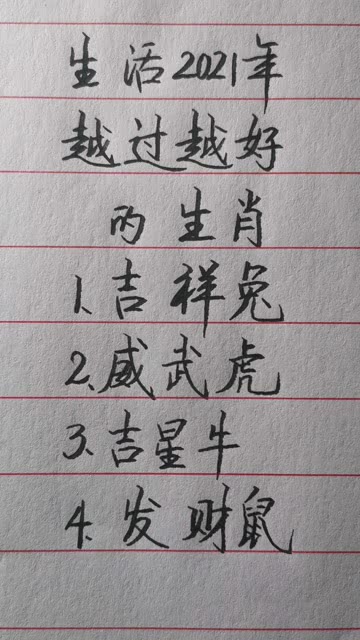 生活2021年
越过越好
的生肖
1、吉祥兔
2、威武虎
3、吉星牛
4、发财鼠